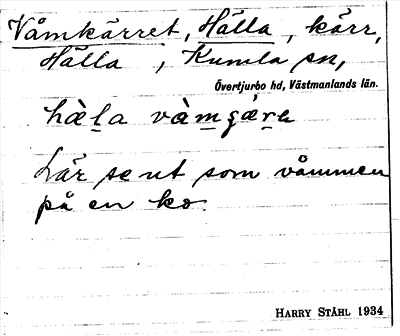 Våmkärret, Hälla, kärr,
Hälla, Kumla sn,
Övertjurbo hd, Västmanlands län.
hà̀l̠a vàm̠gǽr̠e
Lär se ut som våmmen
på en ko.
HARRY STÅHL 1934